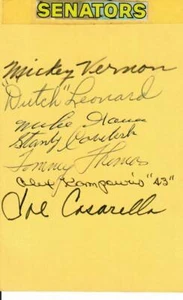 SENATORS
Mickey Vernon
"Dutch" Leonard
Mike
Stanty
Tommy Thomas
Alex Kampouris "43"
Joe Casarella